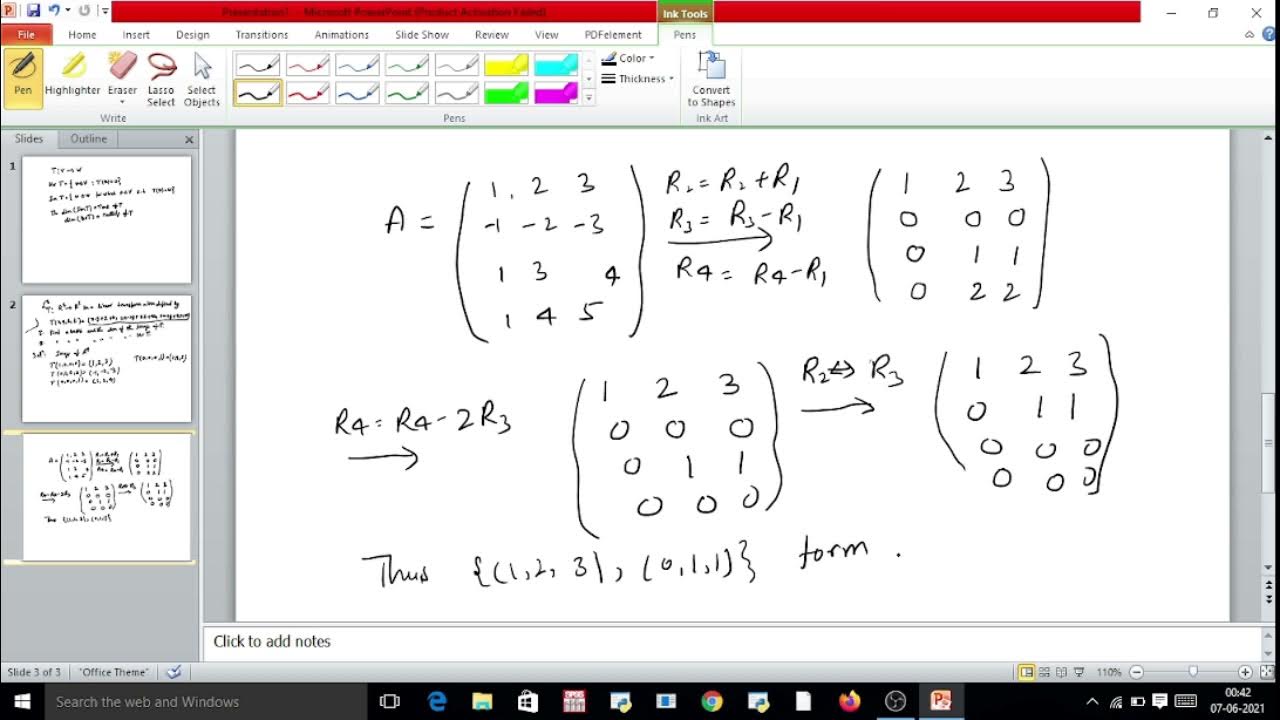 Presentation1 - Microsoft PowerPoint (Product Activation Failed)
Ink Tools
File Home Insert Design Transitions Animations Slide Show Review View PDFelement Pens
Pen Highlighter Eraser Lasso Select Select Objects
Color
Thickness
Convert to Shapes
Write Pens Ink Art
Slides Outline
1
2
A = 1, 2 3
-1 -2 -3
1 3 4
1 4 5
R2 = R2 + R1
R3 = R3 - R1
R4 = R4 - R1
1 2 3
0 0 0
0 1 1
0 2 2
R4 = R4 - 2R3
1 2 3
0 0 0
0 1 1
0 0 0
R2 ↔ R3
1 2 3
0 1 1
0 0 0
0 0 0
Thus {(1, 2, 3), (0, 1, 1)} form .
Click to add notes
Slide 3 of 3 "Office Theme" 110%
Search the web and Windows
00:42
07-06-2021